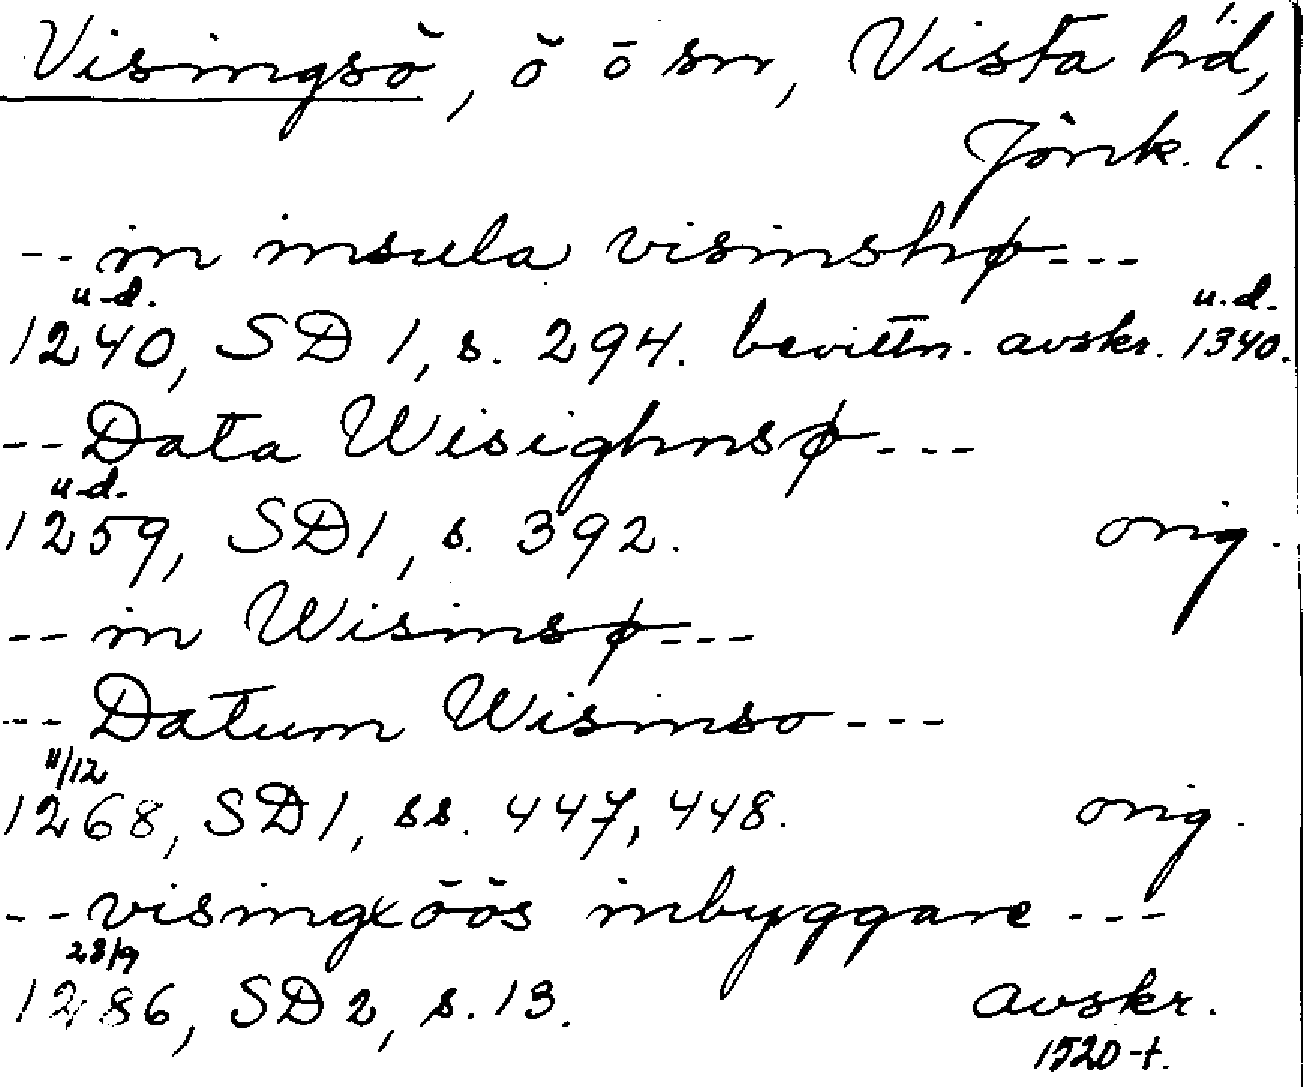 Visingsö, ö ö sn, Vista hd,
Jönk. l.
-- in insula visinshø ---
u.d. u.d.
1240, SD 1, s. 294. bevittn. avskr. 1340.
-- Data Wisighnsø ---
u.d.
1259, SD 1, s. 392. orig.
-- in Wisinsø ---
--- Datum Wisinso ---
11/12
1268, SD 1, ss. 447, 448. orig.
-- visingxöös inbyggare ---
28/9
1286, SD 2, s. 13. avskr.
1520-t.